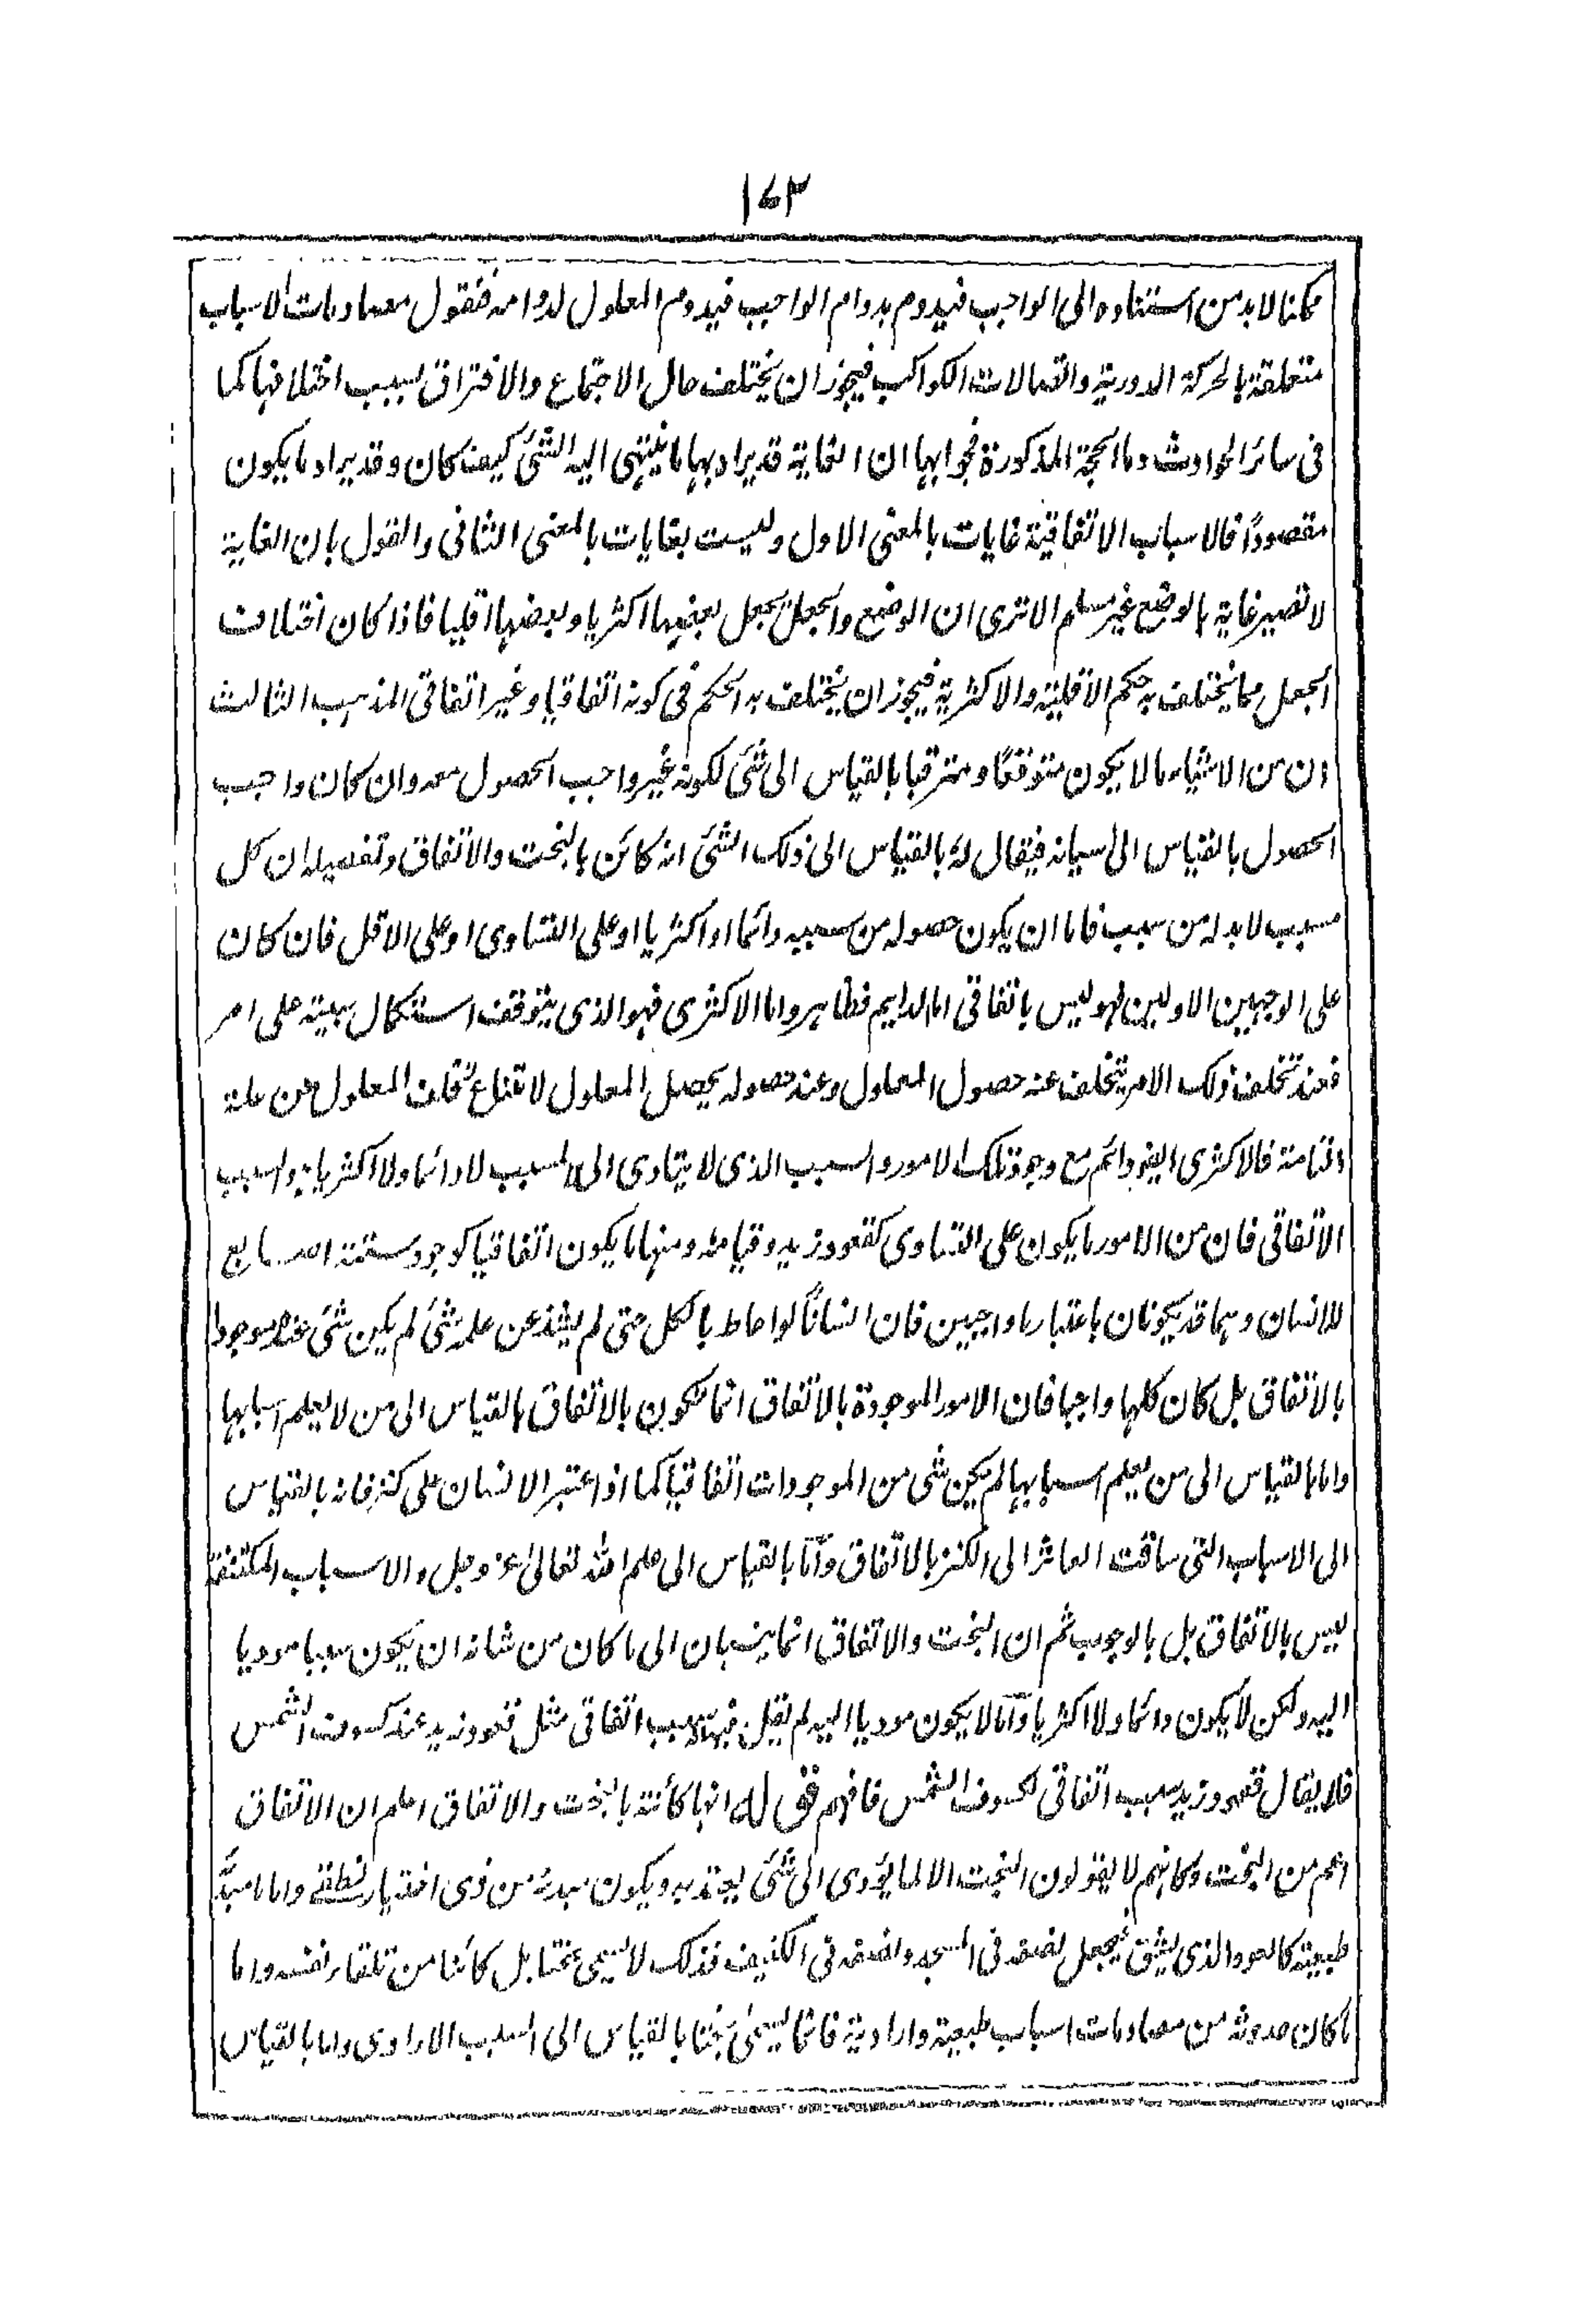 ١٧٣
ممكنا لابد من استناده الى الواجب فيدوم بدوام الواجب فيدوم المعلول لدوامه فنقول مصادمات الاسباب
متعلقة بالحركة الدورية واتصالات الكواكب فيجوز ان يختلف حال الاجتماع والافتراق بسبب اختلافها كما
فى سائر الحوادث واما الحجة المذكورة فجوابها ان الغاية قد يراد بها ما ينتهى اليه الشئ كيف كان وقد يراد ما يكون
مقصوداً فالاسباب الاتفاقية غايات بالمعنى الاول وليست بغايات بالمعنى الثانى والقول بان الغاية
لا تصير غاية بالوضع غير مسلم الا ترى ان الوضع والجعل يجعل بعضها اكثريا وبعضها اقليا فاذا كان اختلاف
الجعل مما يختلف به حكم الاقلية والاكثرية فيجوز ان يختلف به الحكم فى كونه اتفاقيا وغير اتفاقى المذهب الثالث
ان من الاشياء ما لا يكون متوقعًا ومترقبا بالقياس الى شئ لكونه غير واجب الحصول معه وان كان واجب
الحصول بالقياس الى سببه فيقال له بالقياس الى ذلك الشئ انه كائن بالبخت والاتفاق وتفصيله ان كل
مسبب لابد له من سبب فاما ان يكون حصوله من سببه دائما او اكثريا او على التساوى او على الاقل فان كان
على الوجهين الاولين فهو ليس باتفاقى اما الدايم فظاهر واما الاكثرى فهو الذى يتوقف استكمال سببيته على امر
فعند تخلف ذلك الامر يتخلف عنه حصول المعلول وعند حصوله يحصل المعلول لامتناع تخلف المعلول عن علته
التامة فالاكثرى ايضا دائم مع وجود تلك الامور والسبب الذى لا يتادى الى المسبب لا دائما ولا اكثريا هو السبب
الاتفاقى فان من الامور ما يكون على التساوى كقعود زيد وقيامه ومنها ما يكون اتفاقيا كوجود ستة اصابع
للانسان وهما قد يكونان باعتبار ما واجبين فان انسانًا لو احاط بالكل حتى لم يشذ عن علمه شئ لم يكن شئ عنده موجودا
بالاتفاق بل كان كلها واجبا فان الامور الموجودة بالاتفاق انما تكون بالاتفاق بالقياس الى من لا يعلم اسبابها
واما بالقياس الى من يعلم اسبابها لم يكن شئ من الموجودات اتفاقياً كما اذا عثر الانسان على كنز فانه بالقياس
الى الاسباب التى ساقت العاثر الى الكنز بالاتفاق واما بالقياس الى علم الله تعالىٰ عز وجل والاسباب المكتنفة
ليس بالاتفاق بل بالوجوب ثم ان البخت والاتفاق انما ينسبان الى ما كان من شانه ان يكون سببا موديا
اليه ولكن لا يكون دائما ولا اكثريا واما ما لا يكون موديا اليه لم يقل فيه سبب اتفاقى مثل قعود زيد عند كسوف الشمس
فلا يقال قعود زيد سبب اتفاقى لكسوف الشمس فافهم قوله انها كائنة بالبخت والاتفاق اعلم ان الاتفاق
اعم من البخت وكانهم لا يقولون البخت الا لما يؤدى الى شئ يعتد به ويكون مبدئه من ذى اختيار نطقى واما ما مبدئه
طبيعة كالعود الذى يشق فيجعل نصفه فى المسجد ونصفه فى الكنيف فذلك لا يسمى بختا بل كائنا من تلقاء نفسه واما
ما كان حدوثه من مصادمات اسباب طبيعية وارادية فانما يسمىٰ بختا بالقياس الى السبب الارادى واما بالقياس